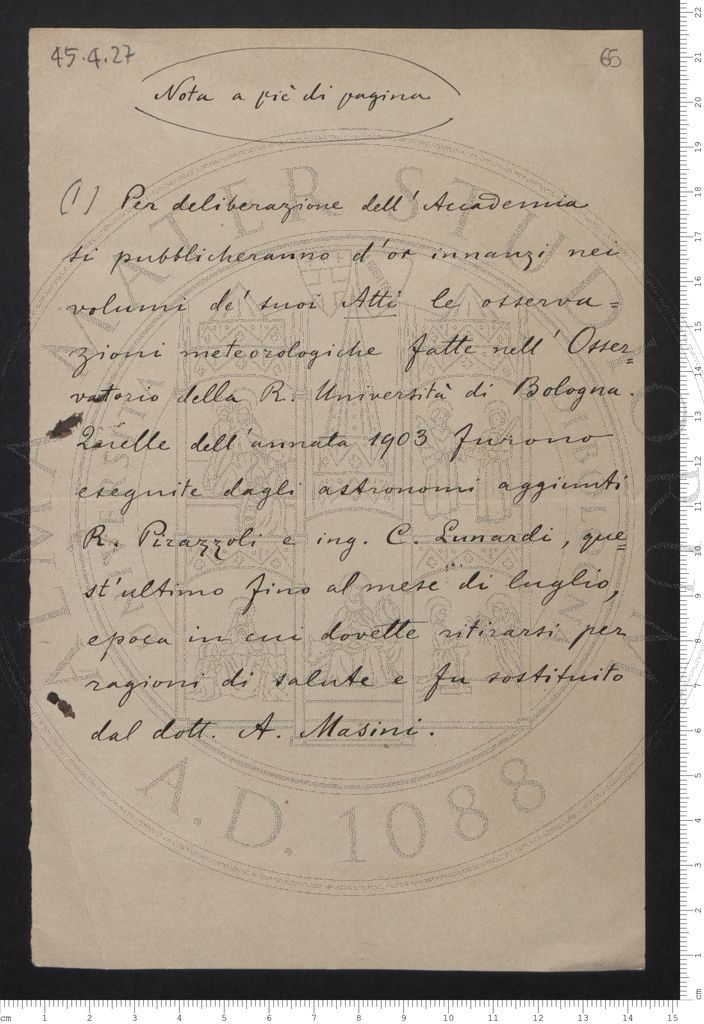 45.4.27
65
Nota a piè di pagina
(1) Per deliberazione dell'Accademia
si pubblicheranno d'or innanzi nei
volumi de' suoi Atti le osserva=
zioni meteorologiche fatte nell'Osser=
vatorio della R. Università di Bologna.
Quelle dell'annata 1903 furono
eseguite dagli astronomi aggiunti
R. Pirazzoli e ing. C. Lunardi, que=
st'ultimo fino al mese di luglio,
epoca in cui dovette ritirarsi per
ragioni di salute e fu sostituito
dal dott. A. Masini.
ALMA MATER STUDIORUM
A.D. 1088
cm 1 2 3 4 5 6 7 8 9 10 11 12 13 14 15
cm 1 2 3 4 5 6 7 8 9 10 11 12 13 14 15 16 17 18 19 20 21 22